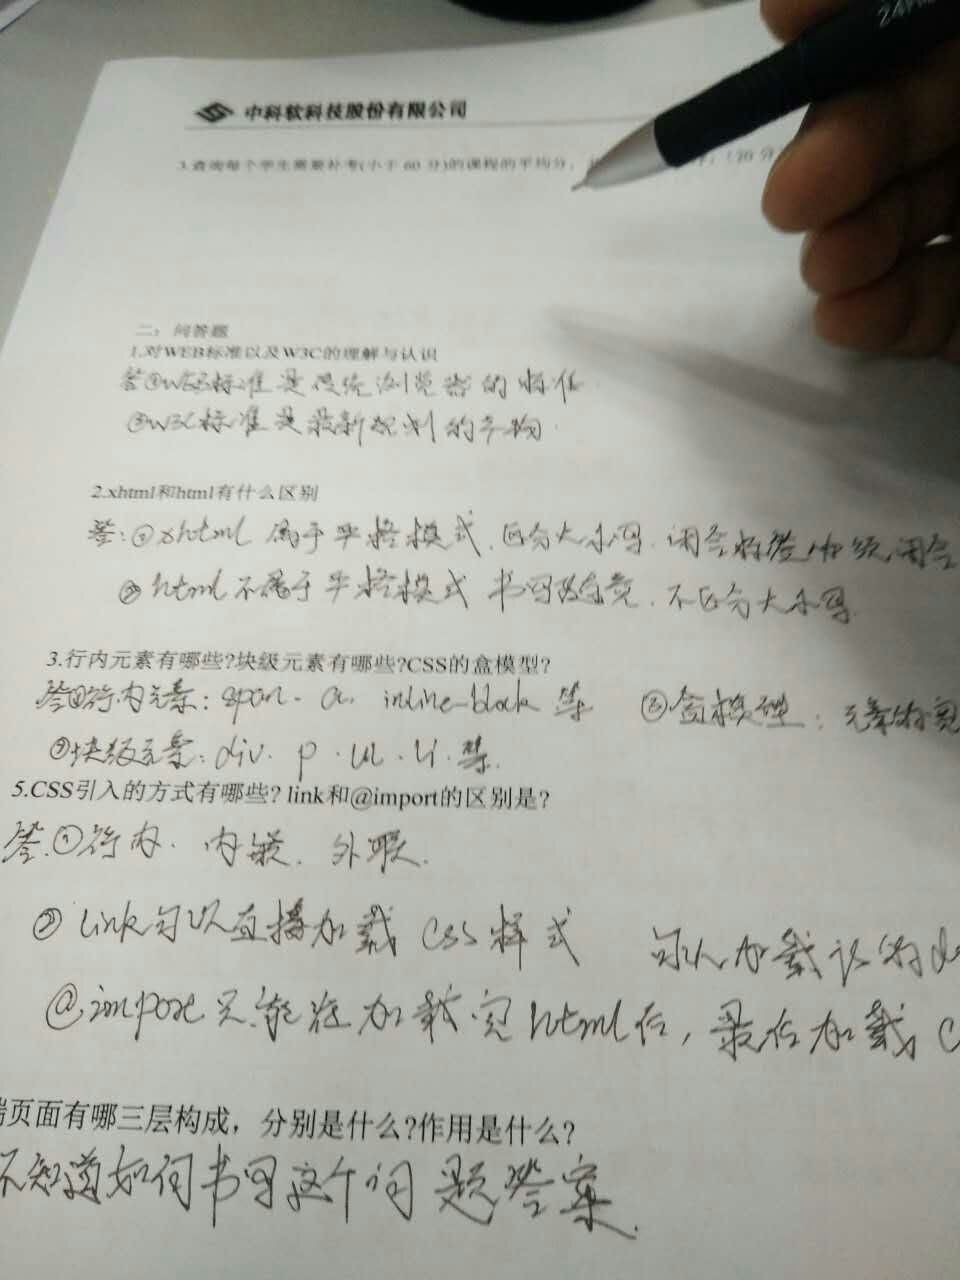 中科软科技股份有限公司
3.查询每个学生需要补考(小于60分)的课程的平均分, (20分
二：问答题
1.对WEB标准以及W3C的理解与认识
答①WEB标准是 浏览器的
②W3C标准是最新规划的产物
2.xhtml和html有什么区别
答:①xhtml 属于严格模式.区分大小写.闭合标签必须闭合
②html不属于严格模式 书写随意.不区分大小写.
3.行内元素有哪些?块级元素有哪些?CSS的盒模型?
答①行内元素: span. a. inline-block 等 ③盒模型: 元素的宽
②块级元素: div. p. ul. li. 等.
5.CSS引入的方式有哪些? link和@import的区别是?
答.①行内. 内嵌. 外联.
②link可以直接加载CSS样式 可以加载
@import只能在加载完html后, 最后加载C
端页面有哪三层构成，分别是什么?作用是什么?
不知道如何书写这个问题答案.
24